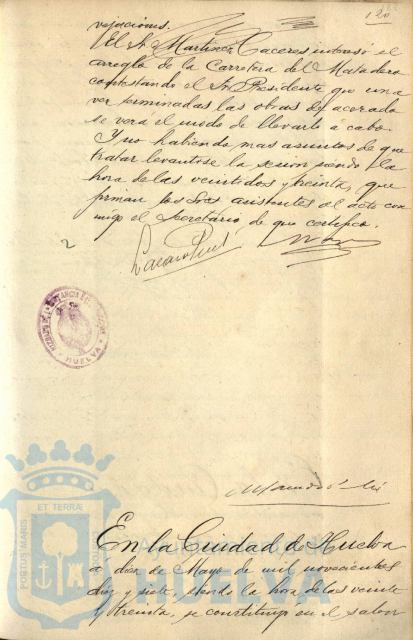 120
vejaciones.
El Sr. Martinez Caceres interesó el
arreglo de la Carretera del Matadero
contestando el Sr. Presidente que una
vez terminadas las obras de acerado
se verá el modo de llevarlo á cabo.
Y no habiendo mas asuntos de que
tratar levantóse la sesión siendo la
hora de las veintidos y treinta, que
firman los Sres asistentes al acto con
migo el Secretario de que certifico.
2
HUELVA
PORTUS MARIS ET TERRAE CUSTODIA
Ayuntamiento de
HUELVA
En la Ciudad de Huelva
a diez de Mayo de mil novecientos
diez y siete, siendo la hora de las veinte
y treinta, se constituyó en el salon